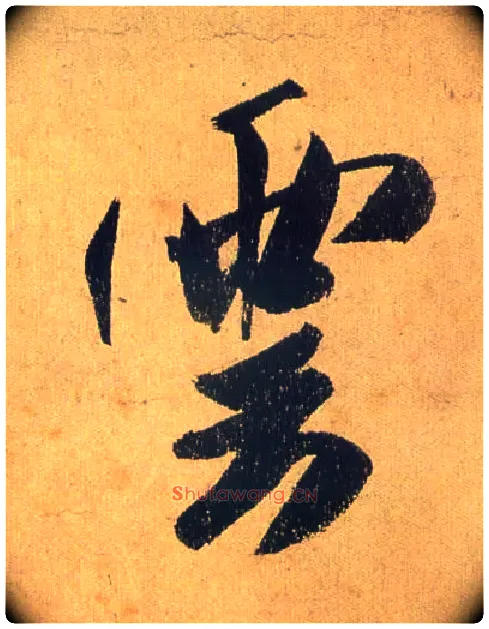 雲
Shufawang.CN